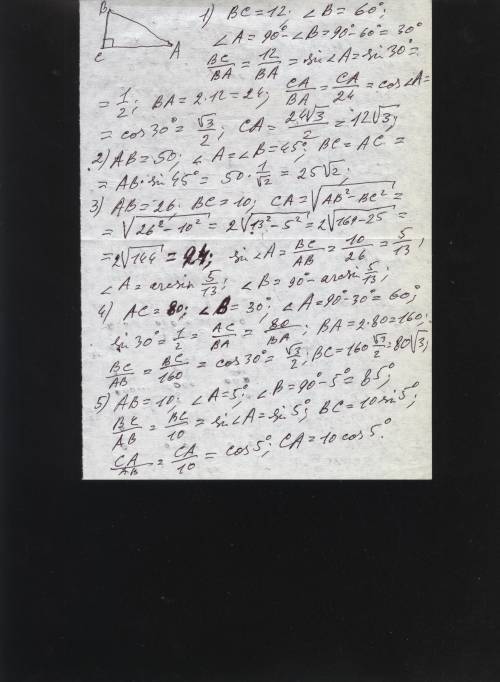 B
C
A
1) BC=12; ∠B=60°;
∠A=90°-∠B=90°-60°=30°
BC/BA = 12/BA = sin∠A = sin 30° =
= 1/2; BA=2·12=24; CA/BA = CA/24 = cos∠A =
= cos 30° = √3/2; CA = 24√3/2 = 12√3;
2) AB=50; ∠A=∠B=45°; BC=AC=
= AB·sin 45° = 50·1/√2 = 25√2;
3) AB=26; BC=10; CA=√(AB²-BC²)=
= √(26²-10²) = 2√(13²-5²) = 2√(169-25) =
= 2√144 = 24; sin∠A = BC/AB = 10/26 = 5/13;
∠A = arcsin 5/13; ∠B = 90°-arcsin 5/13;
4) AC=80; ∠B=30°; ∠A=90°-30°=60°;
sin 30° = 1/2 = AC/BA = 80/BA; BA=2·80=160;
BC/AB = BC/160 = cos 30° = √3/2; BC=160 √3/2 = 80√3;
5) AB=10; ∠A=5°; ∠B=90°-5°=85°;
BC/AB = BC/10 = sin∠A = sin 5°; BC=10 sin 5°;
CA/AB = CA/10 = cos 5°; CA=10 cos 5°.